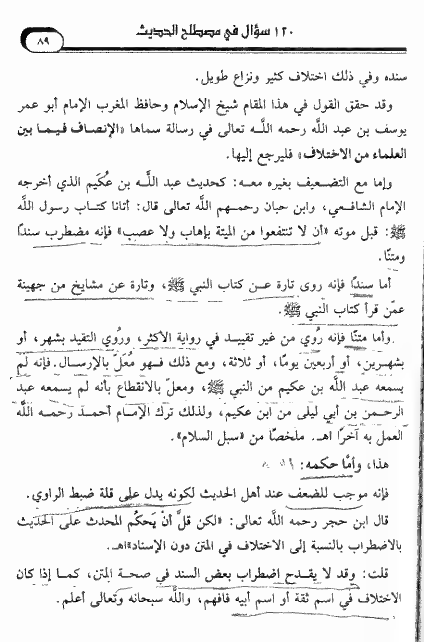 ١٢٠ سؤال في مصطلح الحديث
٨٩
سنده وفي ذلك اختلاف كثير ونزاع طويل.
وقد حقق القول في هذا المقام شيخ الإسلام وحافظ المغرب الإمام أبو عمر
يوسف بن عبد اللَّه رحمه اللَّـه تعالى في رسالة سماها «الإنصاف فيـمـا بين
العلماء من الاختلاف» فليرجع إليها.
وإما مع التضعيف بغيره معـه: كحديث عبد اللَّـه بن عُكَيم الذي أخرجه
الإمام الشافعي، وابن حبان رحمـهم اللَّه تعالى قال: أتانا كتـاب رسول اللَّه
ﷺ: قبل موته «أن لا تنتفعوا من الميتة بإهاب ولا عصب» فإنه مضطرب سندًا
ومتنًا.
أما سندًا فإنه روى تارة عـن كتاب النبي ﷺ، وتارة عن مشايخ من جهينة
عمّن قرأ كتاب النبي ﷺ.
وأما متنًا فإنه رُوي من غير تقييـد في رواية الأكثر، ورُوي التقيد بشهر، أو
بشهـرين، أو أربعين يومًا، أو ثلاثة، ومع ذلك فـهو مُعَلّ بالإرسـال، فإنه لم
يسمعه عبد اللَّه بن عكيم من النبي ﷺ، ومعلّ بالانقطاع بأنه لم يسمعه عبد
الرحـمن بن أبي ليلى من ابن عكيم، ولذلك ترك الإمام أحمـد رحمـه اللَّه
العمل به آخرًا اهـ. ملخصًا من «سبل السلام».
هذا، وأما حكمه:
فإنه موجب للضعف عند أهل الحديث لكونه يدل على قلة ضبط الراوي.
قال ابن حجر رحمه اللَّه تعالى: «لكن قلَّ أنْ يَحكُم المحدث على الحديث
بالاضطراب بالنسبة إلى الاختلاف في المتن دون الإسناد» اهـ.
قلت: وقد لا يقـدح اضطراب بعض السند في صحة المتن، كمـا إذا كان
الاختلاف في اسم ثقة أو اسم أبيه فافهم، واللَّه سبحانه وتعالى أعلم.